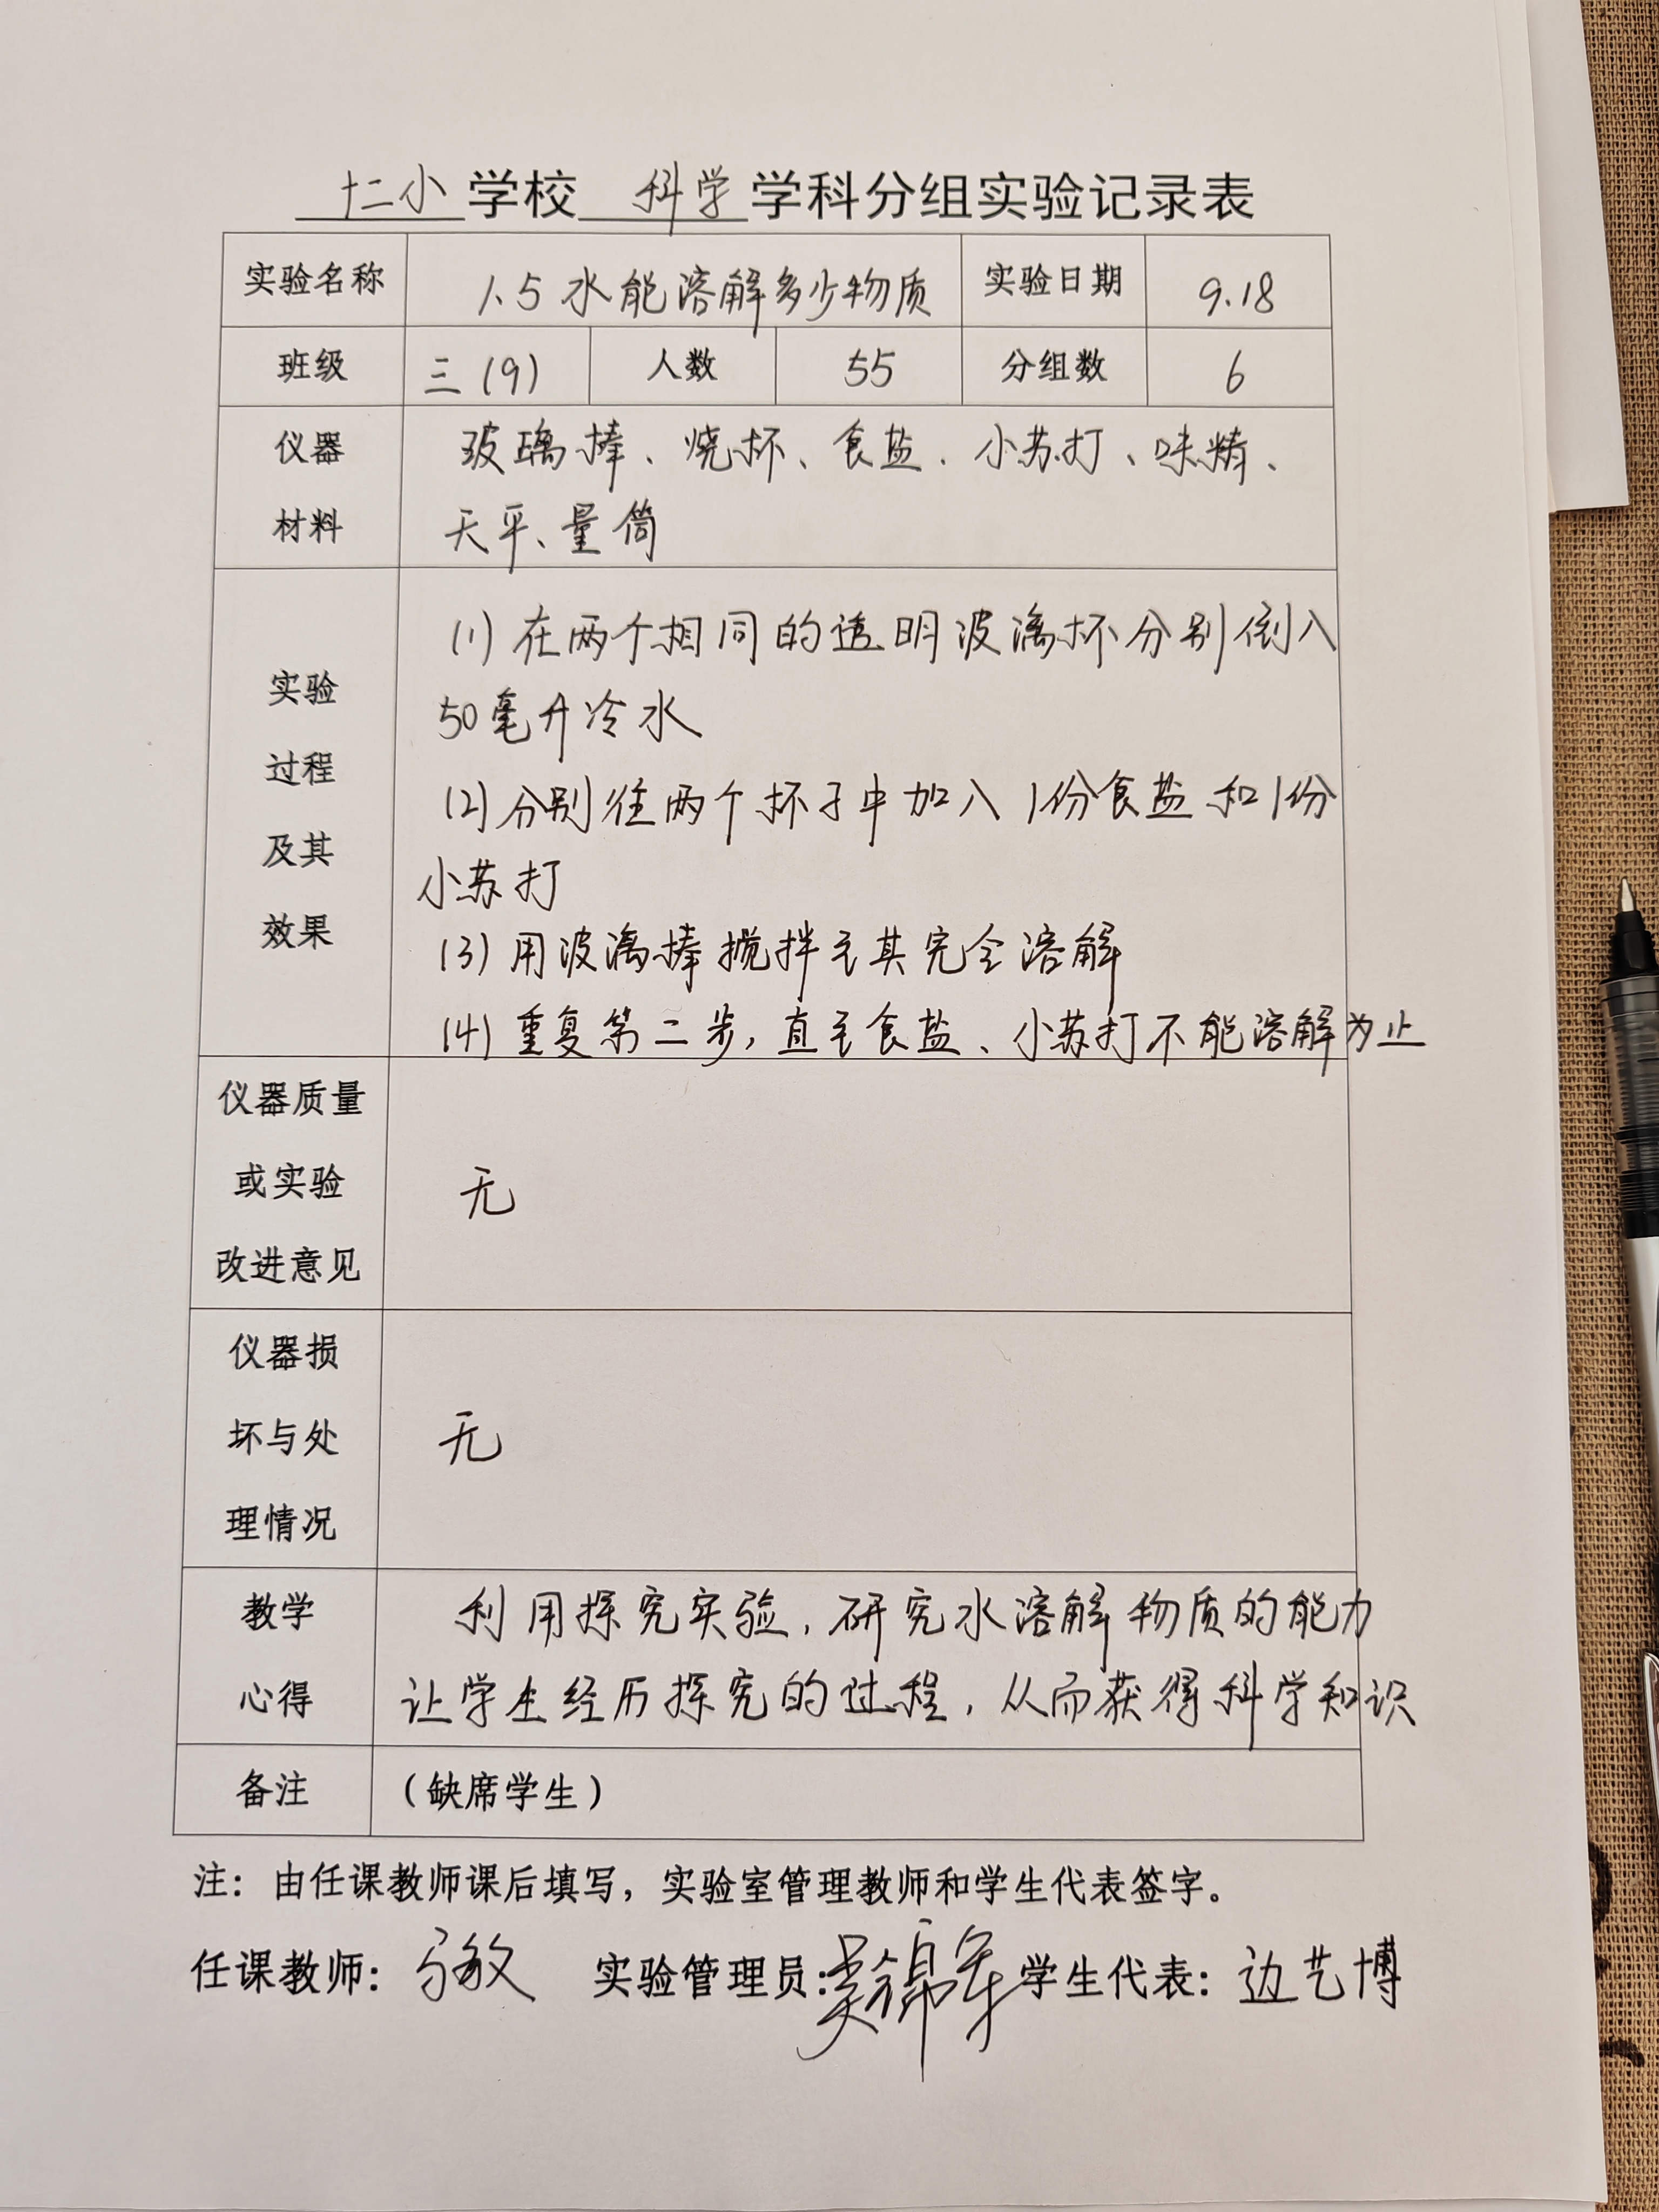 十二小学校 科学 学科分组实验记录表
实验名称 1.5 水能溶解多少物质 实验日期 9.18
班级 三(9) 人数 55 分组数 6
仪器 玻璃棒、烧杯、食盐、小苏打、味精、
材料 天平、量筒
(1) 在两个相同的透明波漓杯分别倒入
实验
50毫升冷水
过程
(2) 分别往两个杯子中加入1份食盐和1份
及其
小苏打
效果
(3) 用波漓棒搅拌至其完全溶解
(4) 重复第二步,直至食盐、小苏打不能溶解为止
仪器质量
或实验 无
改进意见
仪器损
坏与处 无
理情况
教学 利用探究实验,研究水溶解物质的能力
心得 让学生经历探究的过程,从而获得科学知识
备注 (缺席学生)
注:由任课教师课后填写,实验室管理教师和学生代表签字。
任课教师: 马敏 实验管理员: 学生代表: 边艺博